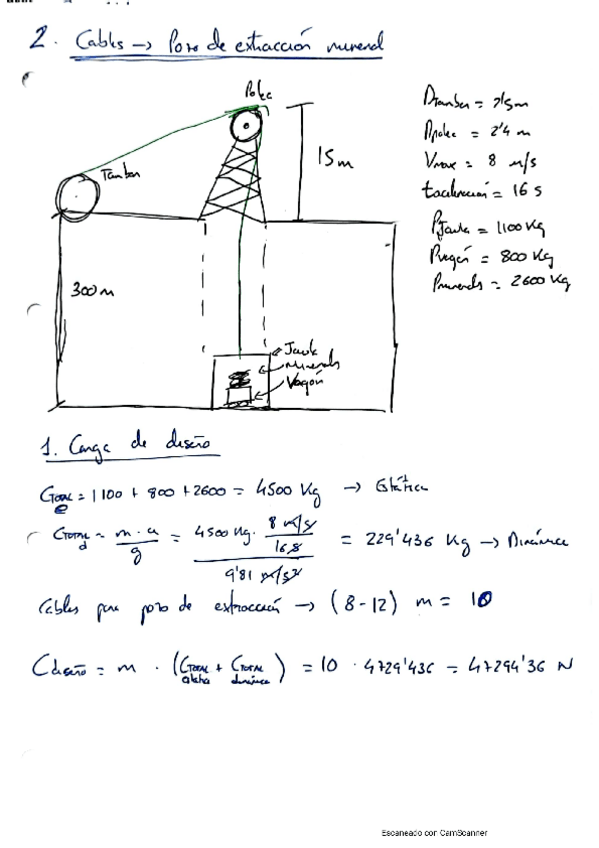 2. Cables → Pozo de extracción mineral
Polea
Tambor
15m
300m
Dtambor = 2'5m
Dpolea = 2'4 m
Vmax = 8 m/s
taceleración = 16 s
PJaula = 1100 Kg
Pvagón = 800 Kg
Pmineral = 2600 Kg
Jaula
Mineral
Vagón
1. Carga de diseño
CTOTAL e = 1100 + 800 + 2600 = 4500 Kg → Estática
CTOTAL d = m · a / g = 4500 Kg · 8 m/s / 16 s / 9'81 m/s² = 229'436 Kg → Dinámica
Cables para pozo de extracción → (8-12) m = 10
Cdiseño = m · (CTOTAL estática + CTOTAL dinámica) = 10 · 4729'436 = 47294'36 N
Escaneado con CamScanner